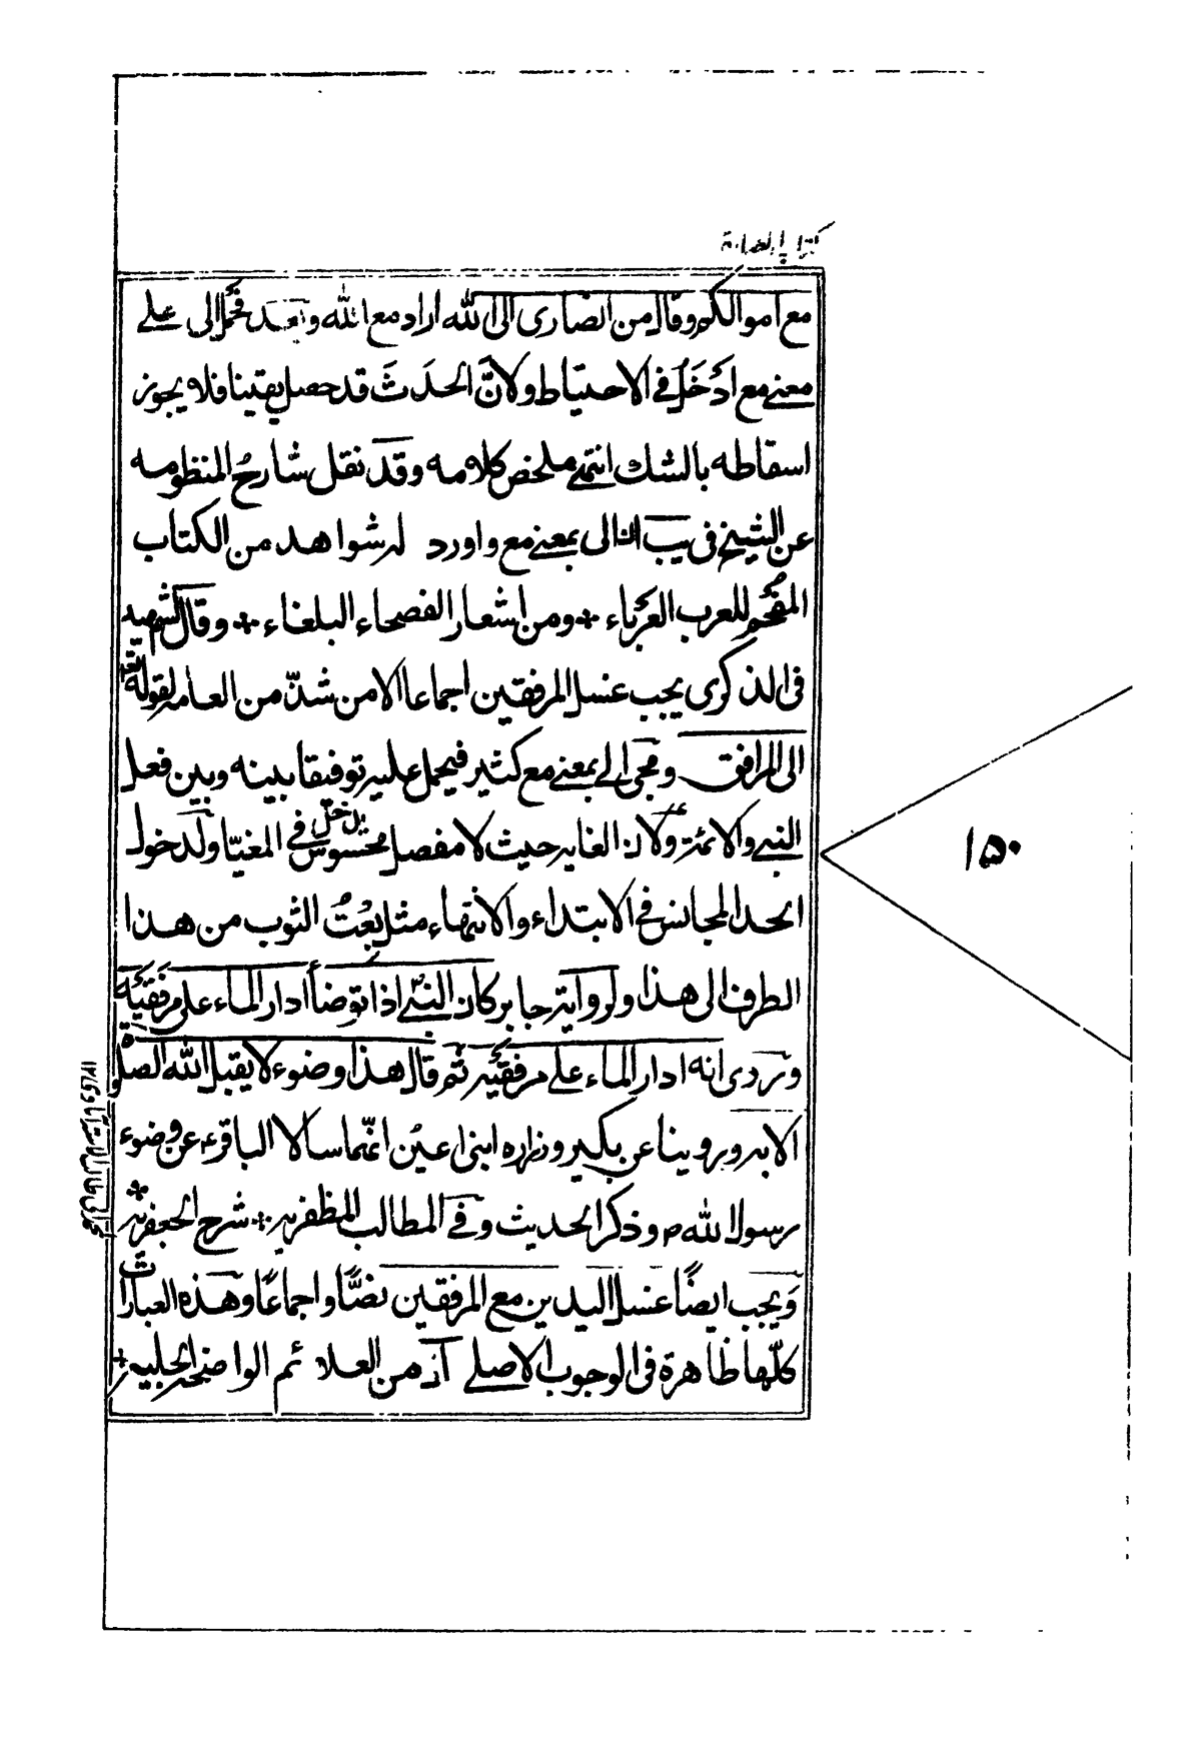 كتاب الطهارة
مع اموالكم وقال من انصارى الى الله اراد مع الله وبعد فحمل الى على
معنى مع ادخَلُ فى الاحتياط ولانّ الحدَثَ قد حصل يقينا فلا يجوز
اسقاطه بالشك انتهى ملخص كلامه وقد نقل شارحُ المنظومه
عن الشيخ فى يب ان الى بمعنى مع واورد له شواهد من الكتاب
المفحم للعرب العَرْباء ومن اشعار الفصحاء البلغاء وقال الشهيد
فى الذكرى يجب غسل المرفقين اجماعا الا من شذّ من العامه لقوله تعه
الى المرافق ومجئ الى بمعنى مع كثير فيحمل عليه توفيقا بينه وبين فعل
النبى والائمة ع ولان الغايه حيث لا مفصل محسوس يدخل فى المغيّا ولدخول
الحد المجانس فى الابتداء والانتهاء مثل بعْتُ الثوب من هذا
الطرف الى هذا ولرواية جابر كان النبىّ اذا توضأ ادار الماء على مرفقيه
وتردى انه ادار الماء على مرفقيه ثم قال هذا وضوء لا يقبل الله الصلوة
الا به وروينا عن بكير وزراره ابنى اعيُن انّهما سالا الباقرء عن وضوء
رسول الله ص وذكر الحديث وفى المطالب المظفريه شرح الجعفريه
وَيجب ايضًا غسل اليدين مع المرفقين نصًّا واجماعًا وهذه العبارات
كلّها ظاهرة فى الوجوب الاصلى آذ من العلائم الواضحه الجليه
١٥٠